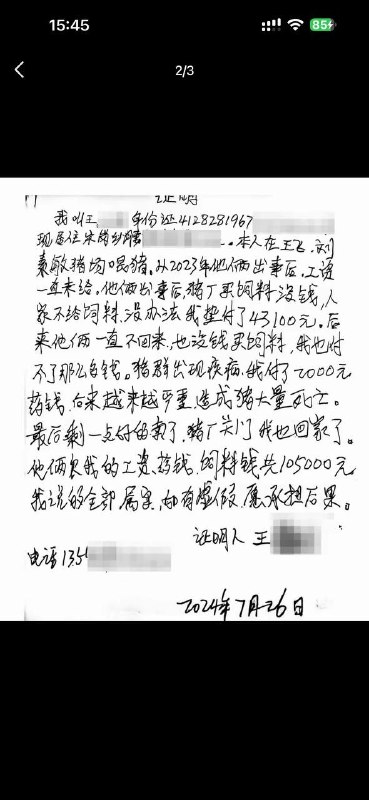 15:45
85
2/3
证明
我叫王 身份证4128281967
现居住宋岗乡 本人在王飞、刘
素敏猪场喂猪。从2023年他俩出事后，工资
一直未给。他俩出事后，猪厂买饲料没钱，人
家不给饲料，没办法我垫付了43100元。后
来他俩一直不回来，也没钱买饲料，我也付
不了那么多钱。猪群出现疾病，我付了2000元
药钱，后来越来越严重，造成猪大量死亡。
最后剩一点付留款了，猪厂关门我也回家了。
他俩欠我的工资、药钱、饲料钱共105000元
我说的全部属实，如有虚假，愿承担后果。
证明人 王
电话135
2024年7月26日